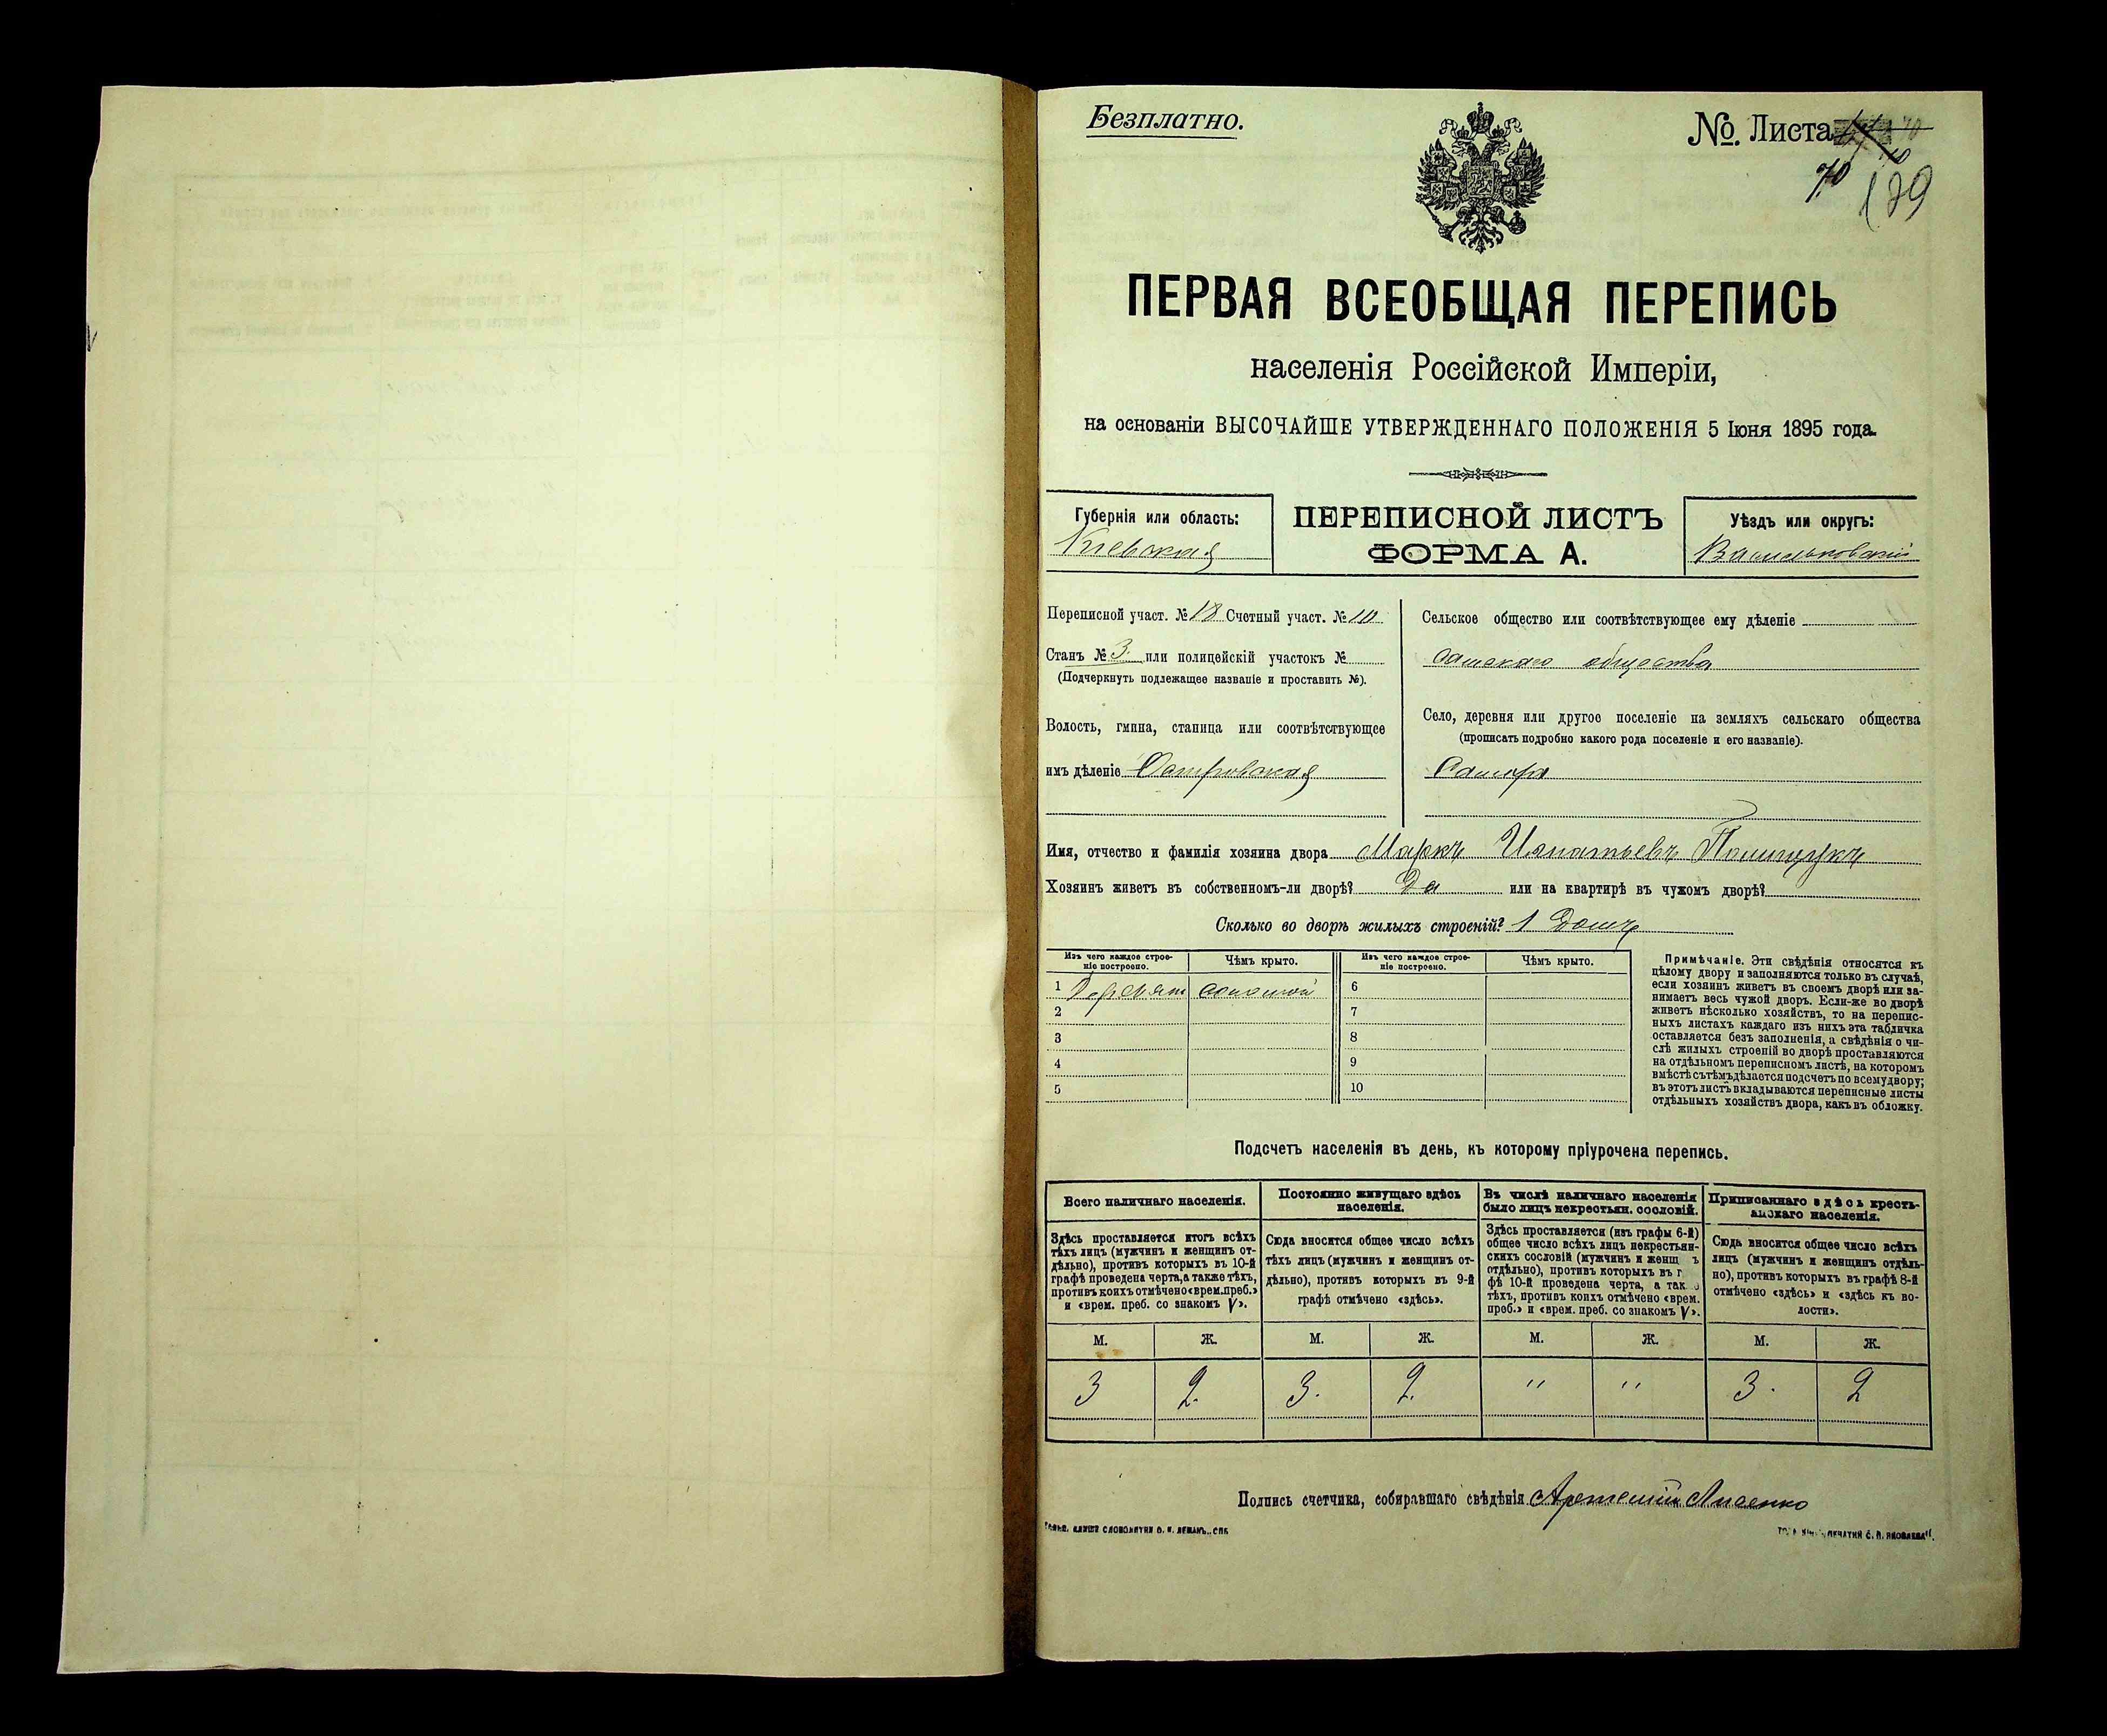 Безплатно.
№. Листа
70
189
ПЕРВАЯ ВСЕОБЩАЯ ПЕРЕПИСЬ
населенія Россійской Имперіи,
на основаніи ВЫСОЧАЙШЕ УТВЕРЖДЕННАГО ПОЛОЖЕНІЯ 5 Іюня 1895 года.
Губернія или область:
Кіевская
ПЕРЕПИСНОЙ ЛИСТЪ
ФОРМА А.
Уѣздъ или округъ:
Васильковскій
Переписной участ. № 18 Счетный участ. № 10
Станъ № 3. или полицейскій участокъ №
(Подчеркнуть подлежащее названіе и проставить №).
Волость, гмина, станица или соотвѣтствующее
имъ дѣленіе Островская
Сельское общество или соотвѣтствующее ему дѣленіе
общества
Село, деревня или другое поселеніе на земляхъ сельскаго общества
(прописать подробно какого рода поселеніе и его названіе).
Имя, отчество и фамилія хозяина двора Маркъ Игнатьевъ Полищукъ
Хозяинъ живетъ въ собственномъ-ли дворѣ? Да или на квартирѣ въ чужомъ дворѣ?
Сколько во дворѣ жилыхъ строеній? 1 Домъ
Изъ чего каждое строе-
ніе построено.
Чѣмъ крыто.
Изъ чего каждое строе-
ніе построено.
Чѣмъ крыто.
1 Деревян соломой
2
3
4
5
6
7
8
9
10
Примѣчаніе. Эти свѣдѣнія относятся къ
цѣлому двору и заполняются только въ случаѣ,
если хозяинъ живетъ въ своемъ дворѣ или за-
нимаетъ весь чужой дворъ. Если-же во дворѣ
живетъ нѣсколько хозяйствъ, то на перепис-
ныхъ листахъ каждаго изъ нихъ эта табличка
оставляется безъ заполненія, а свѣдѣнія о чи-
слѣ жилыхъ строеній во дворѣ проставляются
на отдѣльномъ переписномъ листѣ, на которомъ
вмѣстѣ съ тѣмъ дѣлается подсчетъ по всему двору;
въ этотъ листъ вкладываются переписные листы
отдѣльныхъ хозяйствъ двора, какъ въ обложку.
Подсчетъ населенія въ день, къ которому пріурочена перепись.
Всего наличнаго населенія.
Здѣсь проставляется итогъ всѣхъ
тѣхъ лицъ (мужчинъ и женщинъ от-
дѣльно), противъ которыхъ въ 10-й
графѣ проведена черта, а также тѣхъ,
противъ коихъ отмѣчено «врем. преб.»
и «врем. преб. со знакомъ V».
Постоянно живущаго здѣсь
населенія.
Сюда вносится общее число всѣхъ
тѣхъ лицъ (мужчинъ и женщинъ от-
дѣльно), противъ которыхъ въ 9-й
графѣ отмѣчено «здѣсь».
Въ числѣ наличнаго населенія
было лицъ некрестьян. сословій.
Здѣсь проставляется (изъ графы 6-й)
общее число всѣхъ лицъ некрестьян-
скихъ сословій (мужчинъ и женщ ъ
отдѣльно), противъ которыхъ въ г
фѣ 10-й проведена черта, а так
тѣхъ, противъ коихъ отмѣчено «врем.
преб.» и «врем. преб. со знакомъ V».
Приписаннаго здѣсь кресть-
янскаго населенія.
Сюда вносится общее число всѣхъ
лицъ (мужчинъ и женщинъ отдѣль-
но), противъ которыхъ въ графѣ 8-й
отмѣчено «здѣсь» и «здѣсь къ во-
лости».
М. Ж. М. Ж. М. Ж. М. Ж.
3 2. 3. 2. " " 3. 2
Подпись счетчика, собиравшаго свѣдѣнія Артемій Лисенко